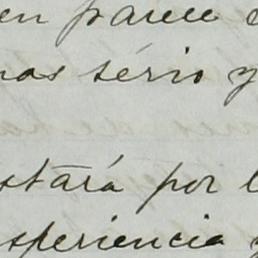 en parece
nas sério y
stará por l
speriencia y